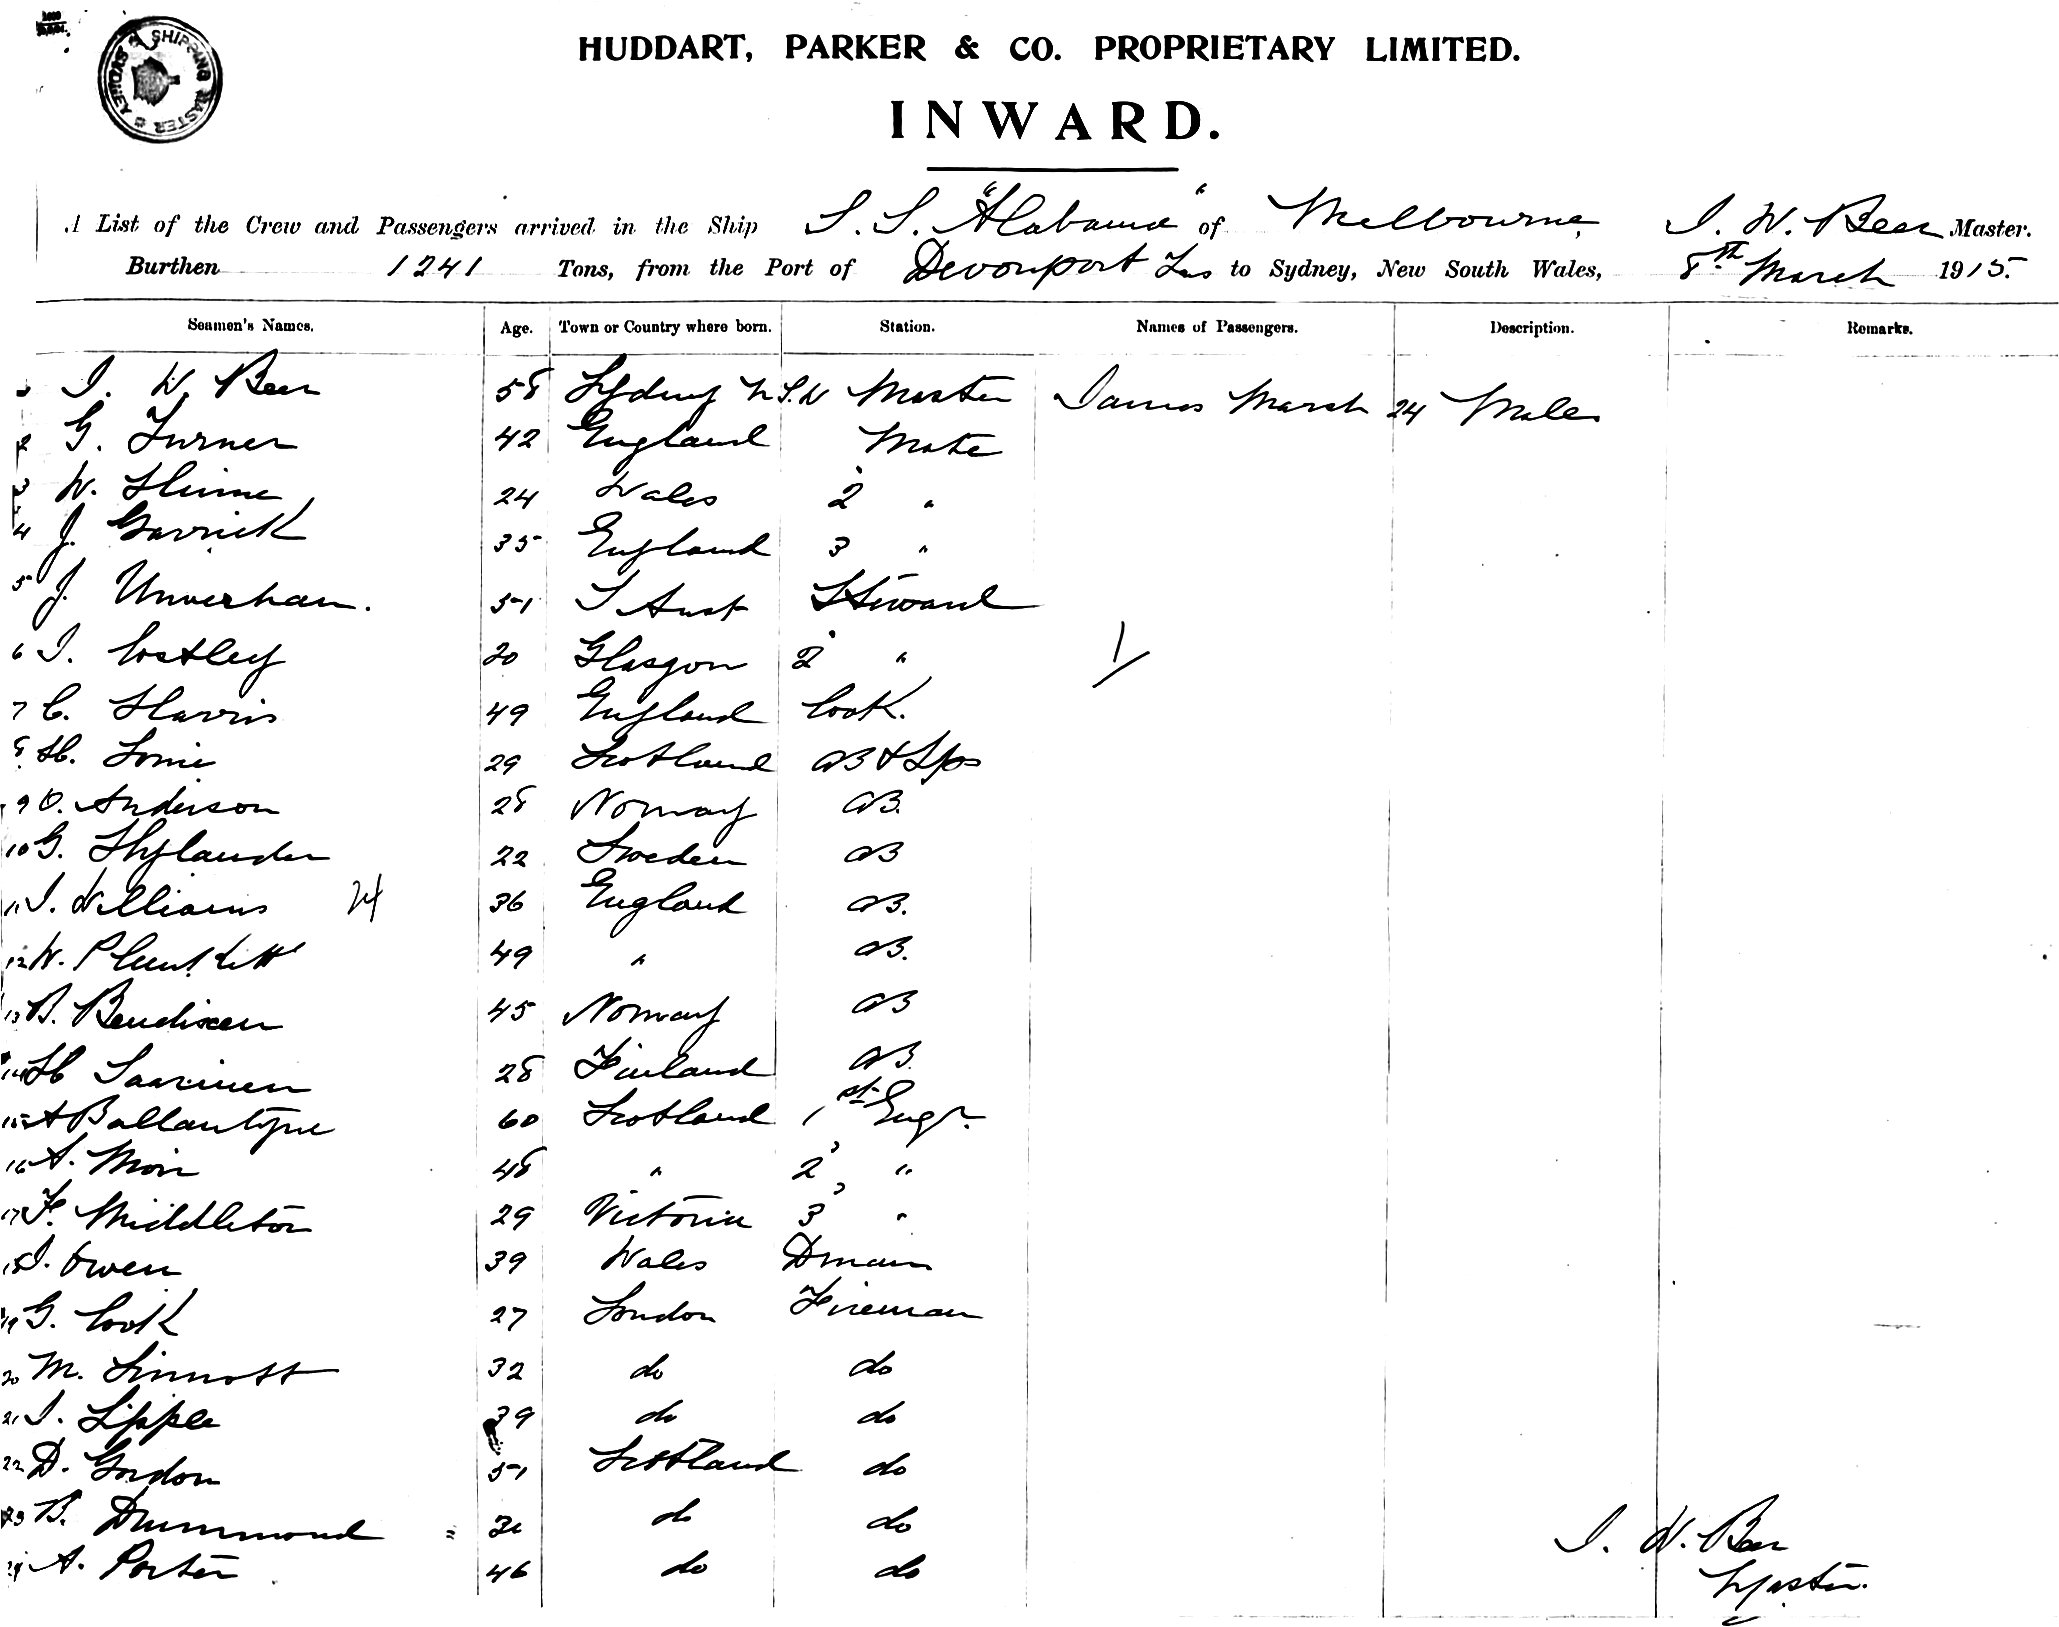 SHIPPING MASTER SYDNEY
HUDDART, PARKER & CO. PROPRIETARY LIMITED.
INWARD.
A List of the Crew and Passengers arrived in the Ship S.S. "Alabama" of Melbourne, I. W. Beer Master.
Burthen 1241 Tons, from the Port of Devonport Tas to Sydney, New South Wales, 8th March 1915.
Seamen's Names. Age. Town or Country where born. Station. Names of Passengers. Description. Remarks.
I. W. Beer 58 Sydney N.S.W Master James Marsh 24 Males
2 G. Turner 42 England Mate
3 W. 24 Wales 2 "
4 J. Garrick 35 England 3 "
5 J. Unverhau. 51 S Aust Steward
6 I. Costley 20 Glasgow 2 " 1
7 C. Harris 49 England Cook.
8 H. 29 Scotland AB & Lps
9 O. Anderson 28 Norway AB.
10 G. 22 Sweden AB
11 I. Williams 24 36 England AB.
12 W. Plunkett 49 " AB.
13 B. Bendixen 45 Norway AB
14 H Saarinen 28 Finland AB.
15 A Ballantyne 60 Scotland 1st Engr.
16 A. Moir 48 " 2 "
17 F. Middleton 29 Victoria 3 "
18 I. Owen 39 Wales Dman
19 G. Cook 27 London Fireman
20 M. Sinnott 32 do do
21 I. Lipple 39 do do
22 D. Gordon 51 Scotland do
23 B. Drummond = do do
24 A. Porter 46 do do
I. W. Beer
Master.